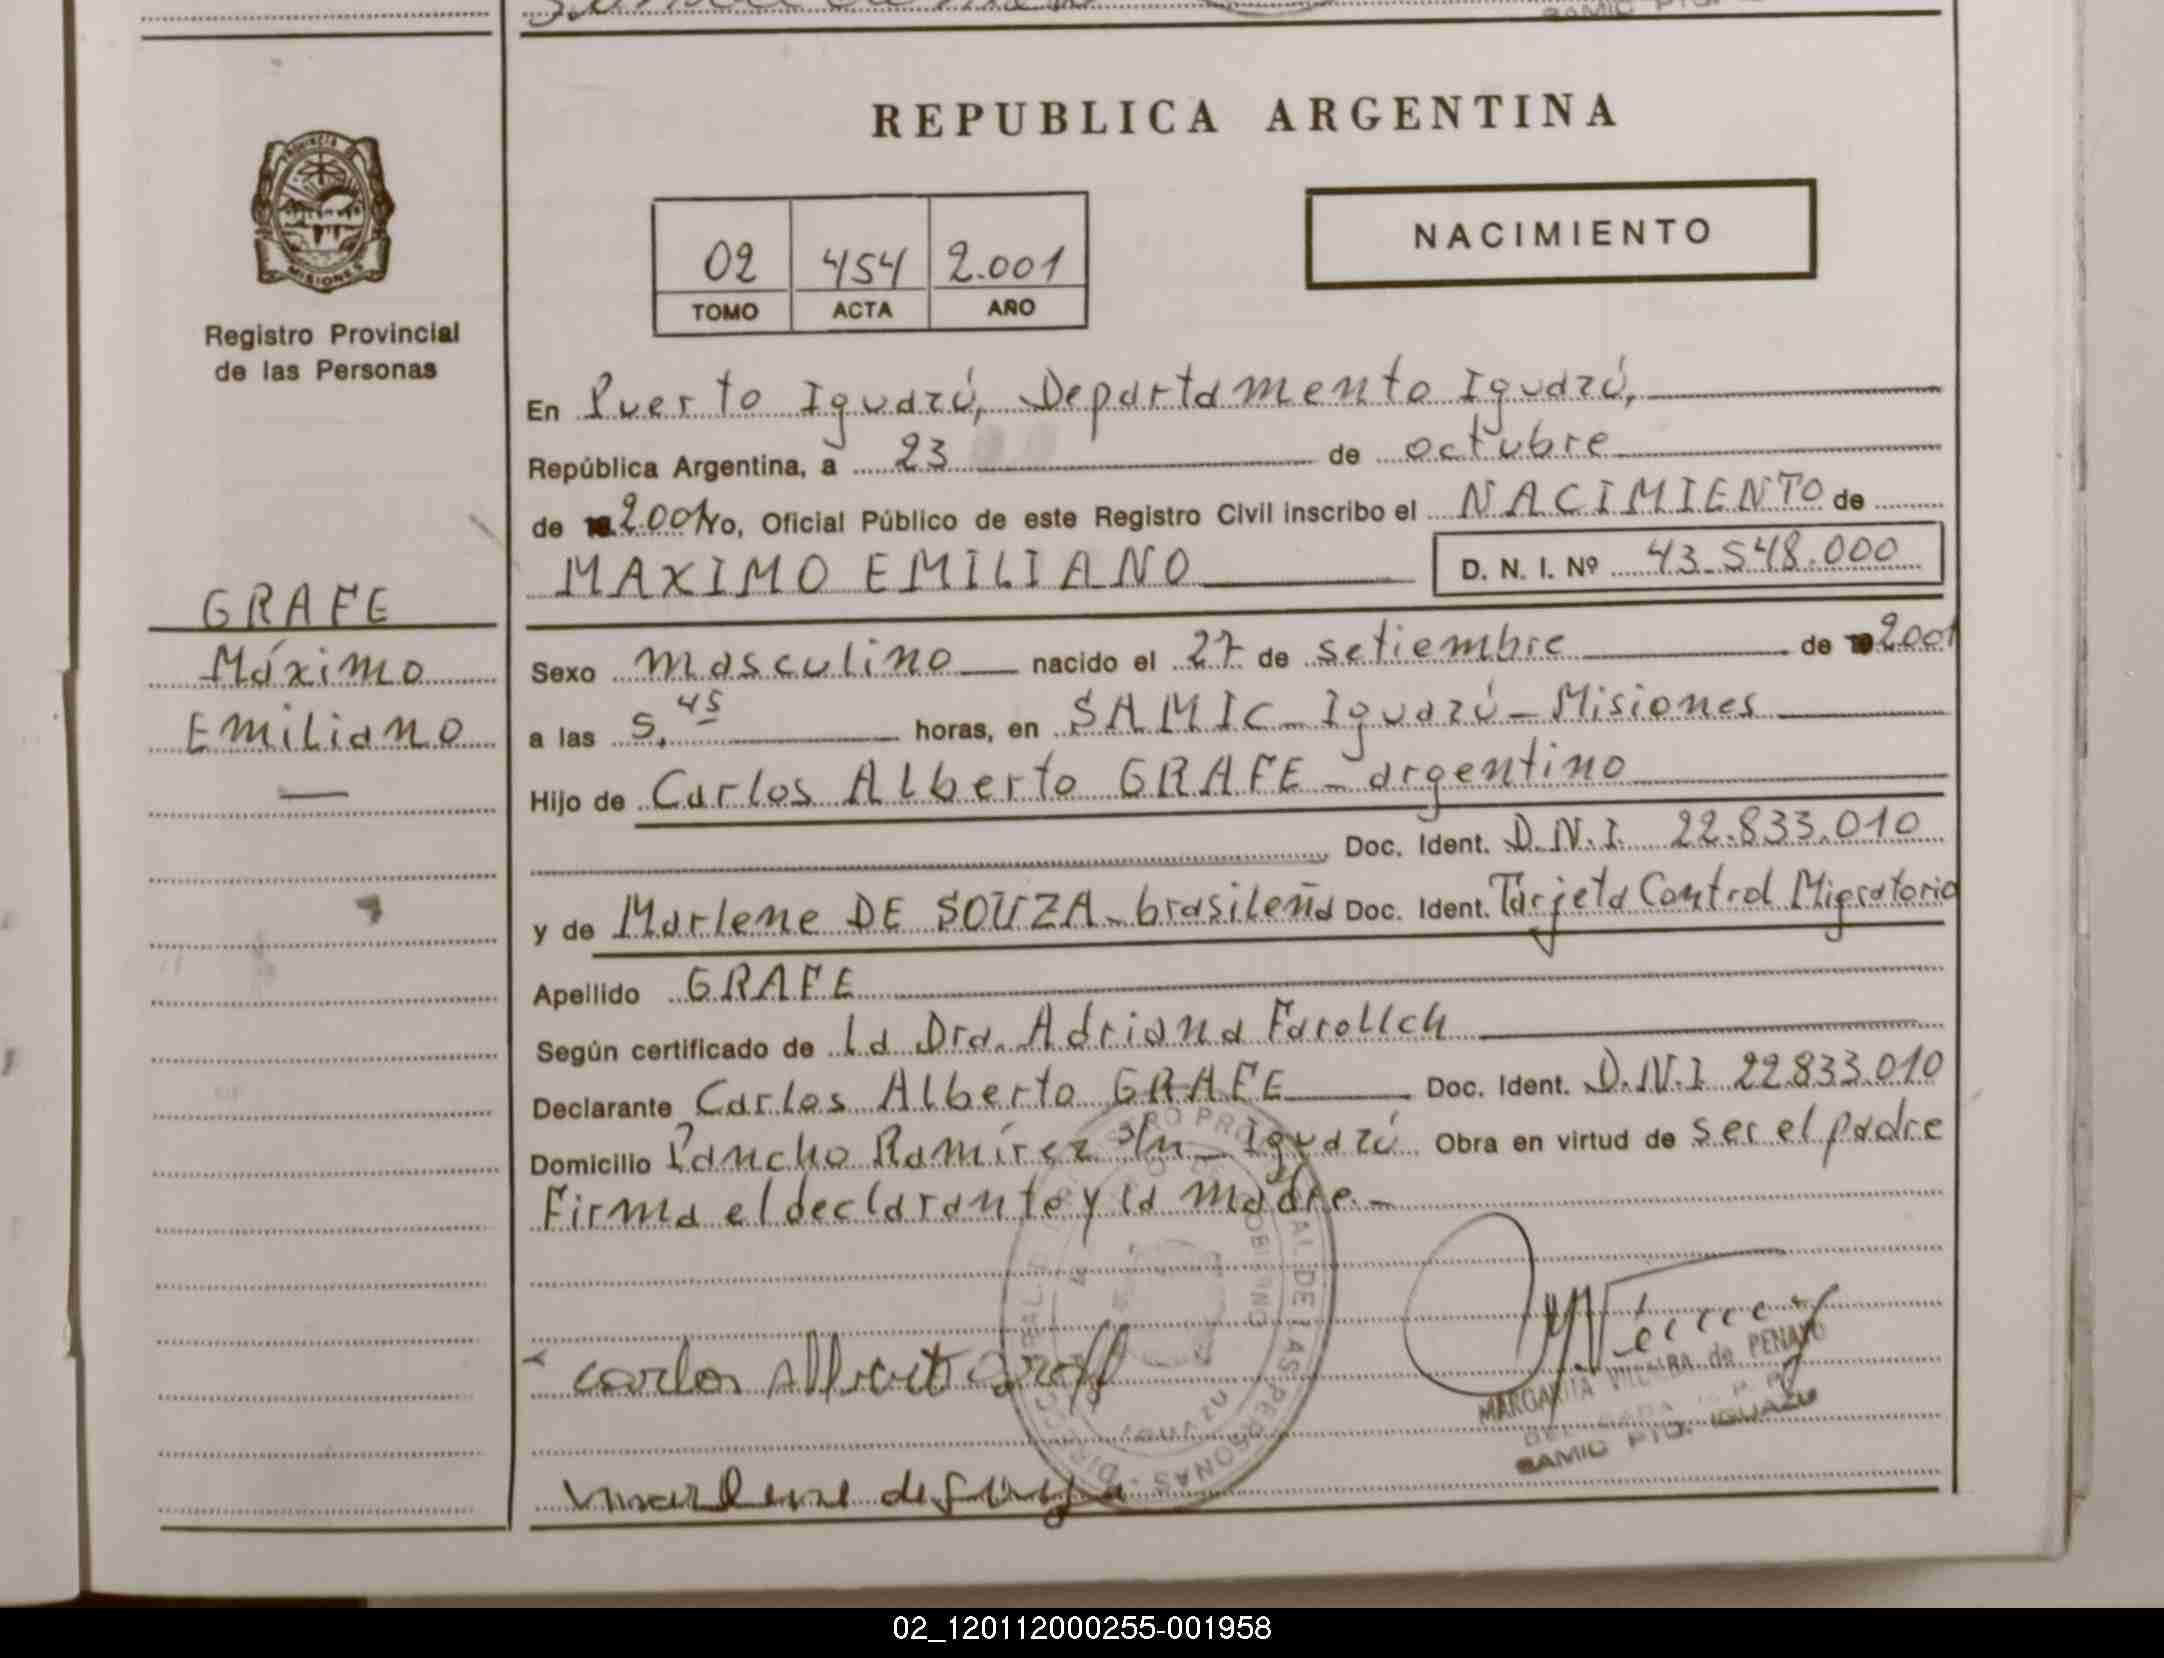 REPUBLICA ARGENTINA
PROVINCIA DE
MISIONES
Registro Provincial
de las Personas
02 454 2.001
TOMO ACTA AÑO
NACIMIENTO
En Puerto Iguazú, Departamento Iguazú,
República Argentina, a 23 de octubre
de 19 2001 Yo, Oficial Público de este Registro Civil inscribo el NACIMIENTO de
MAXIMO EMILIANO D. N. I. Nº 43.548.000
GRAFE
Máximo
Emiliano
Sexo masculino nacido el 27 de setiembre de 19 2001
a las 5,45 horas, en SAMIC - Iguazú - Misiones
Hijo de Carlos Alberto GRAFE - argentino
Doc. Ident. D.N.I. 22.833.010
y de Marlene DE SOUZA - brasileña Doc. Ident. Tarjeta Control Migratorio
Apellido GRAFE
Según certificado de La Dra. Adriana Farollch
Declarante Carlos Alberto GRAFE Doc. Ident. D.N.I 22.833.010
Domicilio Pancho Ramírez s/n - Iguazú Obra en virtud de ser el padre
Firma el declarante y la madre. -
carlos Alberto Graff
MARGARITA VILLALBA de PENAYO
SAMIC PTO. IGUAZU
marlene de Souza
DE LAS PERSONAS
IGUAZU
02_120112000255-001958